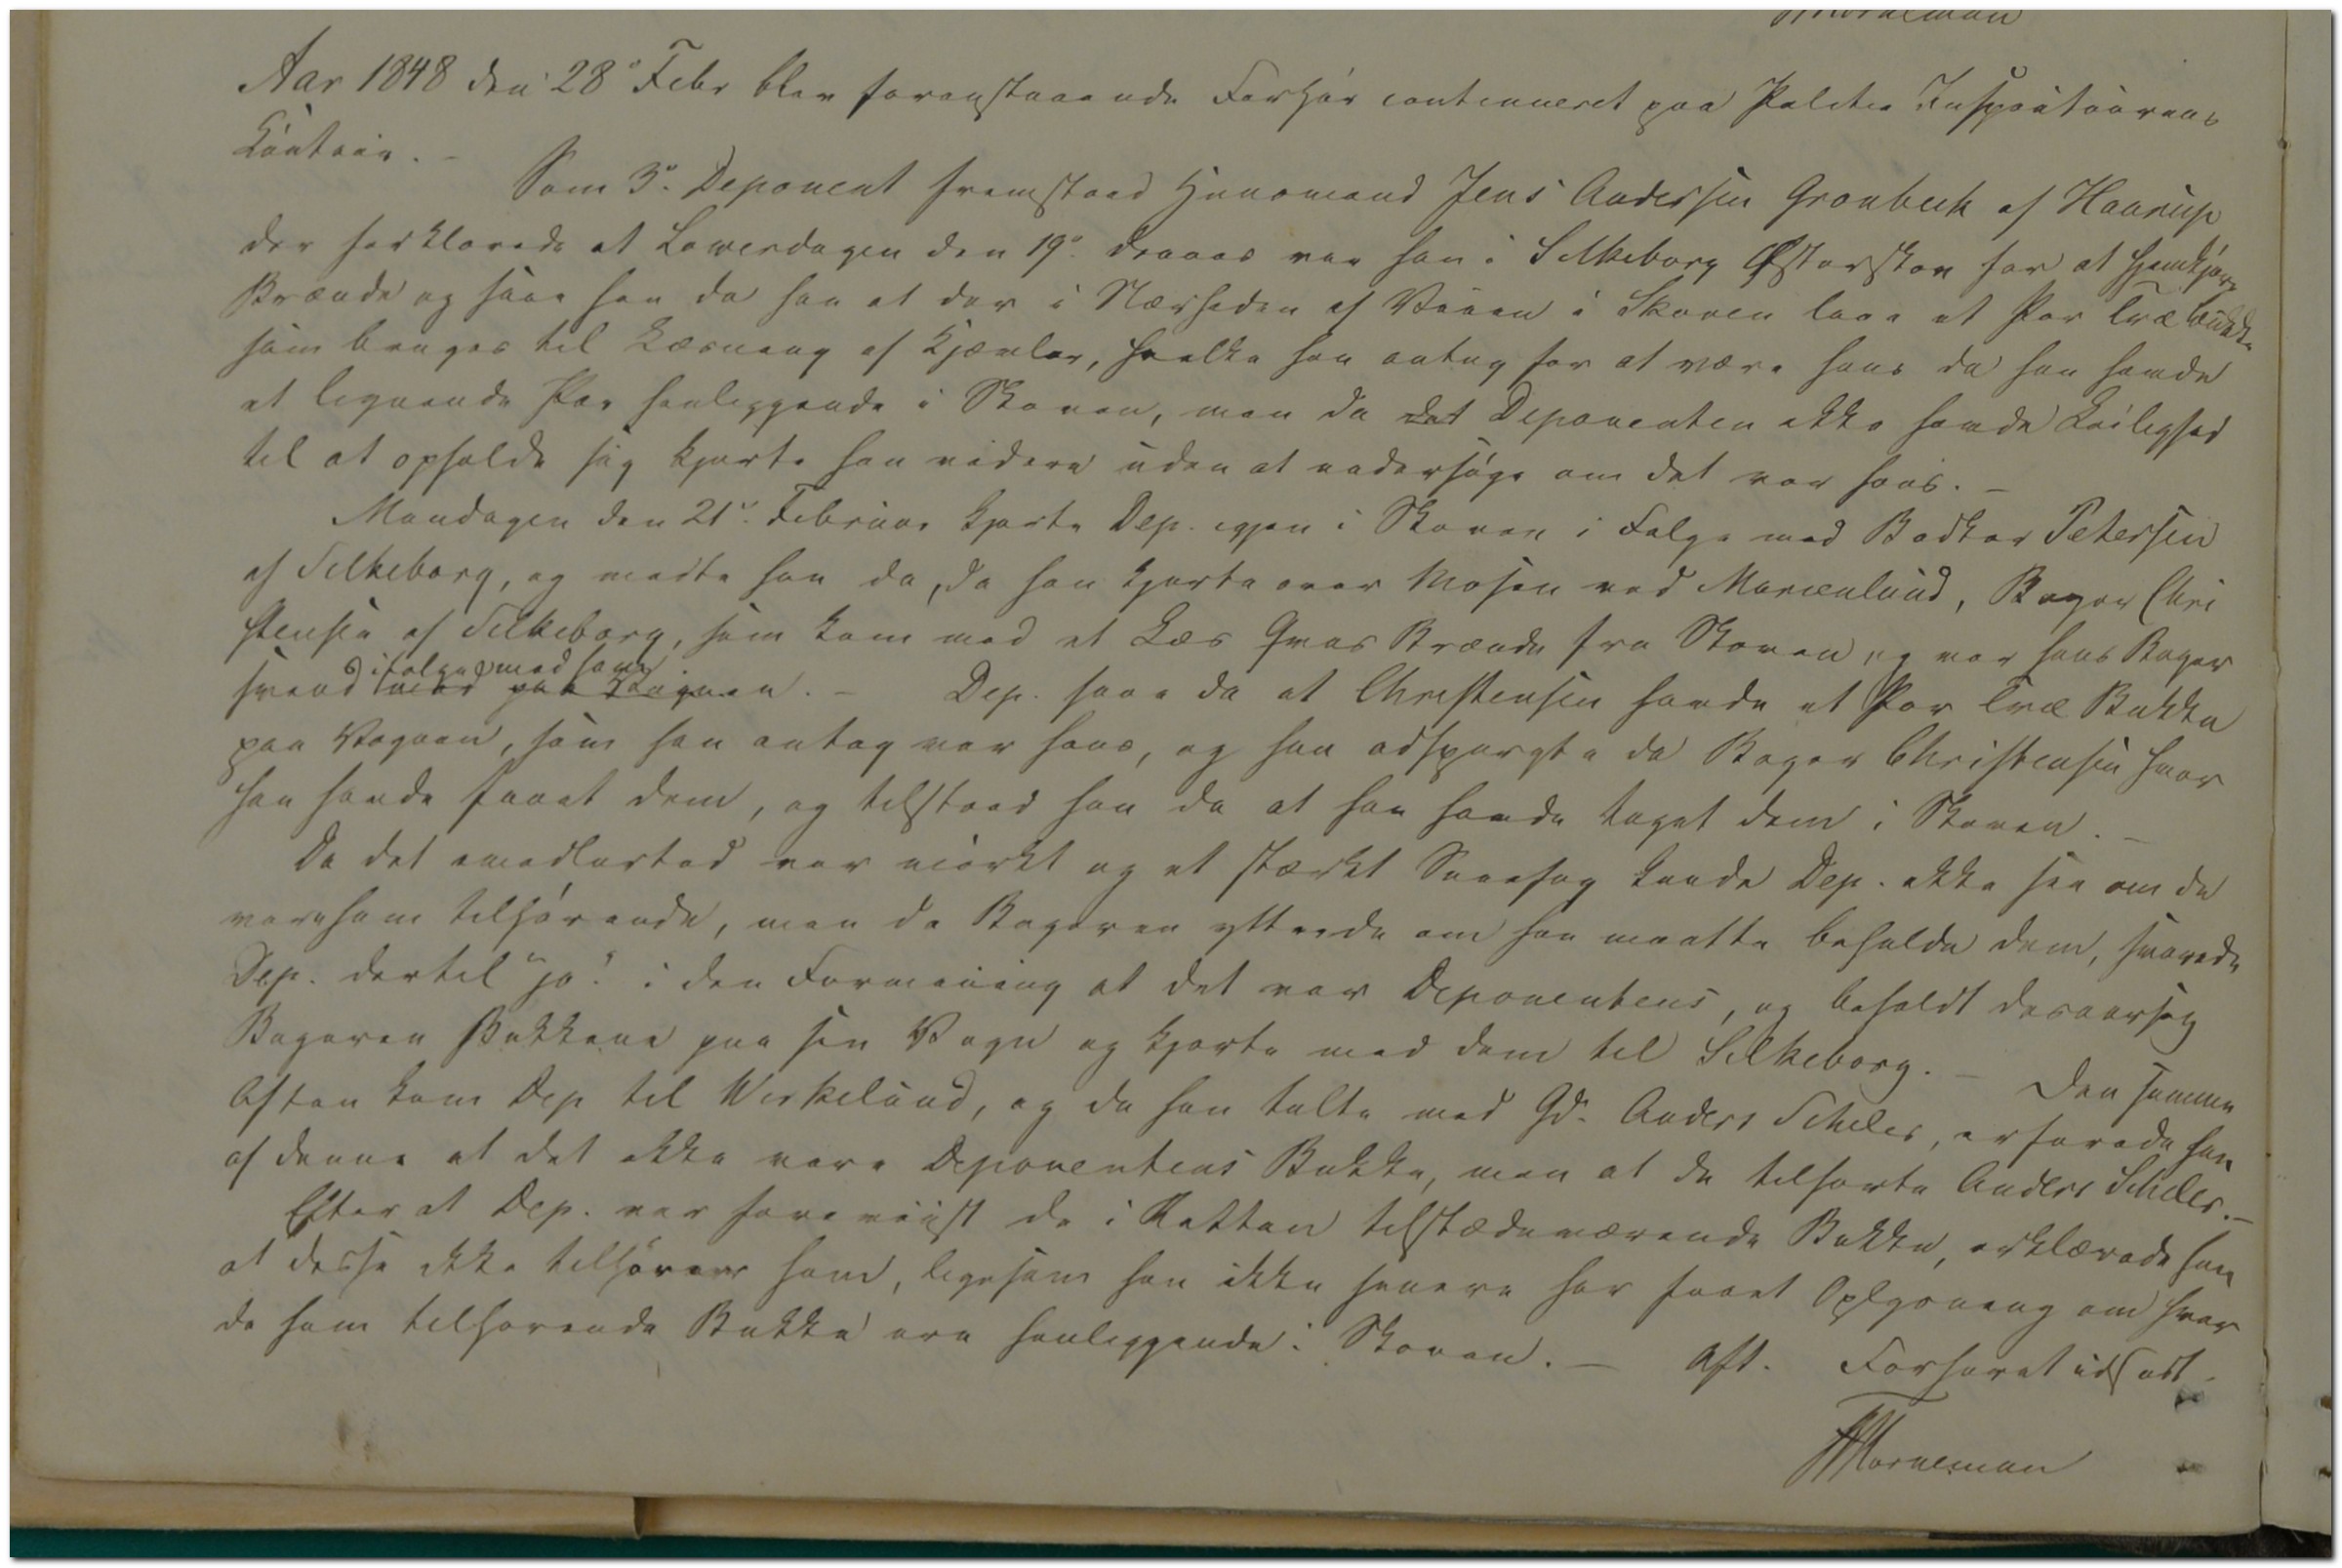 Aar 1848 den 28º Febr blev foranstaaende Forhör continueret paa Politie Inspecteurens
Contoir. –
Som 3º. Deponent fremstaad Huusmand Jens Andersen Gronbech af Haarup
der forklarede at Løverdagen den 19º. dennes var han i Silkeborg Østerskov for at hjemkjøre
Brænde og saae han da han at der i Nærheden af Veien i Skoven laae et Par Træ Bukke
som bruges til Læsning af Kjævler, hvilke han antog for at være hans da han havde
et lignende Par henliggende i Skoven, men da det Deponenten ikke havde Leilighed
til at opholde sig kjørte han videre uden at undersøge om det var hans. –
Mandagen den 21º. Februar kjørte Dep. igjen i Skoven i Følge med Bødker Petersen
af Silkeborg, og mødte han da, da han kjørte over Mosen ved Marienlund, Bager Chri
stensen af Silkeborg, som kom med et Læs Qvas Brænde fra Skoven og var hans Bager
i følge med ham
svend med paa Vognen. – Dep. saae da at Christensen havde et Par Træ Bukke
paa Vognen, som han antog var hans, og han adspurgte da Bager Christensen hvor
han havde faaet dem, og tilstaad han da at han havde taget dem i Skoven. –
Da det imidlertid var mörkt og et stærkt Sneefog kunde Dep. ikke see om de
vare ham tilhörende, men da Bageren yttrede om han maatte beholde dem, svarede
Dep. dertil "jo" i den Formening at det var Deponentens, og beholdt desaarsag
Bageren Bukkene paa sin Vogn og kjørte med dem til Silkeborg. – Den samme
Aften kom Dep til Virkelund, og da han talte med Gdr. Anders Scheler, erfarede han
af denne at det ikke vare Deponentens Bukke, men at de tilhørte Anders Scheler. –
Efter at Dep. var foreviist de i Retten tilstædeværende Bukke, erklærede han
at disse ikke tilhörer ham, ligesom han ikke senere har faaet Oplysning om hvor
de ham tilhørende Bukke ere henliggende i Skoven. – Aft. Forhøret udsadt. –
Horneman